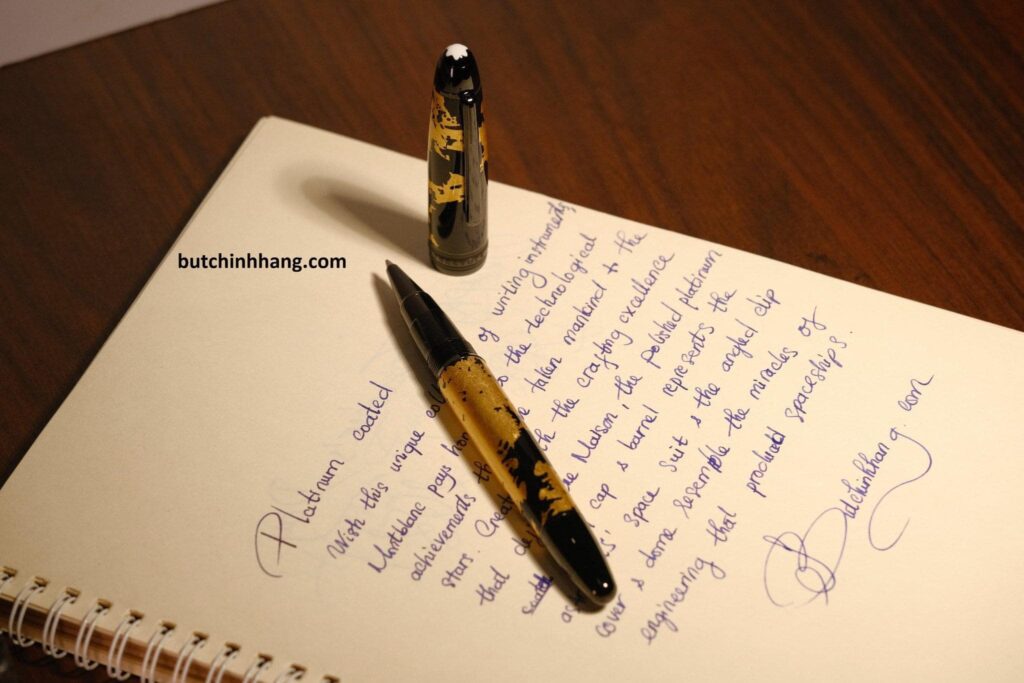 butchinhhang.com
Platinum coated
With this unique of writing instruments,
Montblanc pays the technological
achievements taken mankind to the
stars. the crafting excellence
that Maison, the polished platinum
cap & barrel represents the
space suit & the angled clip
cover & dome resemble the miracles of
engineering that produced spaceships.
Butchinhhang.com